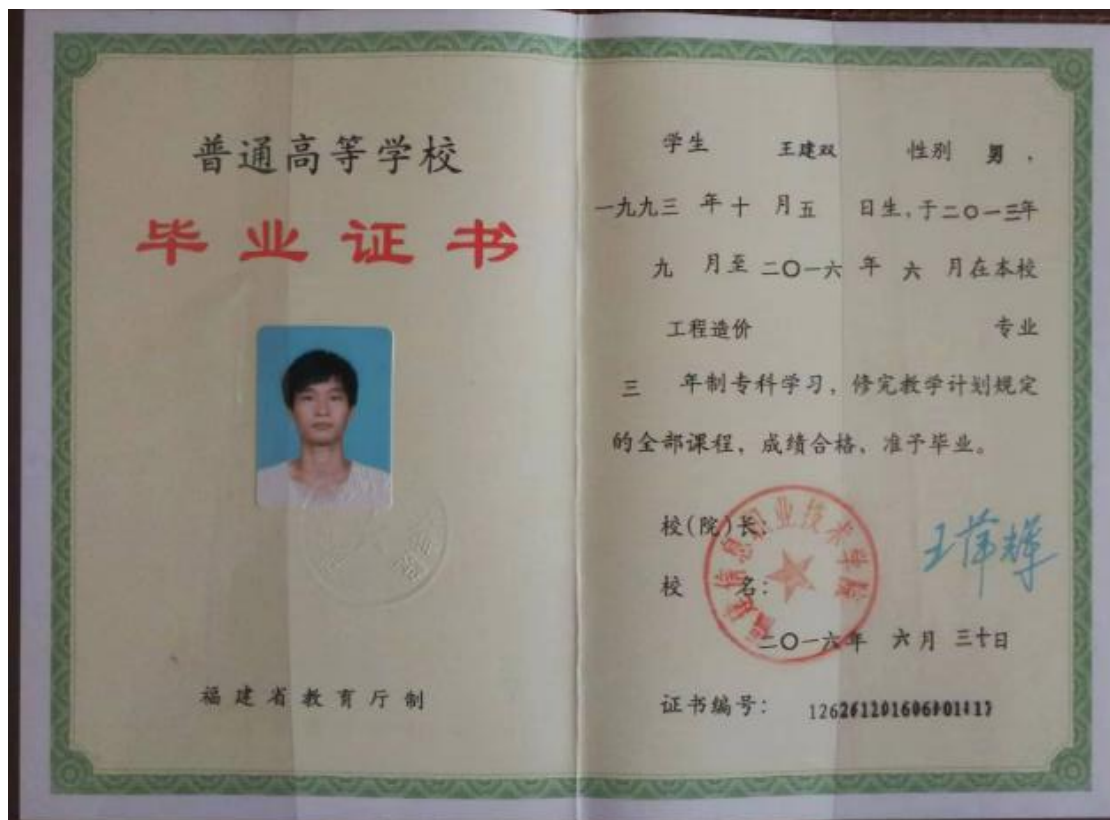 普通高等学校
毕业证书
福建省教育厅制
学生 王建双 性别 男，
一九九三 年十 月五 日生，于二〇一三年
九 月至 二〇一六 年 六 月在本校
工程造价 专业
三 年制专科学习，修完教学计划规定
的全部课程，成绩合格，准予毕业。
校(院)长：
校 名：
福建信息职业技术学院
二〇一六年 六月 三十日
证书编号：